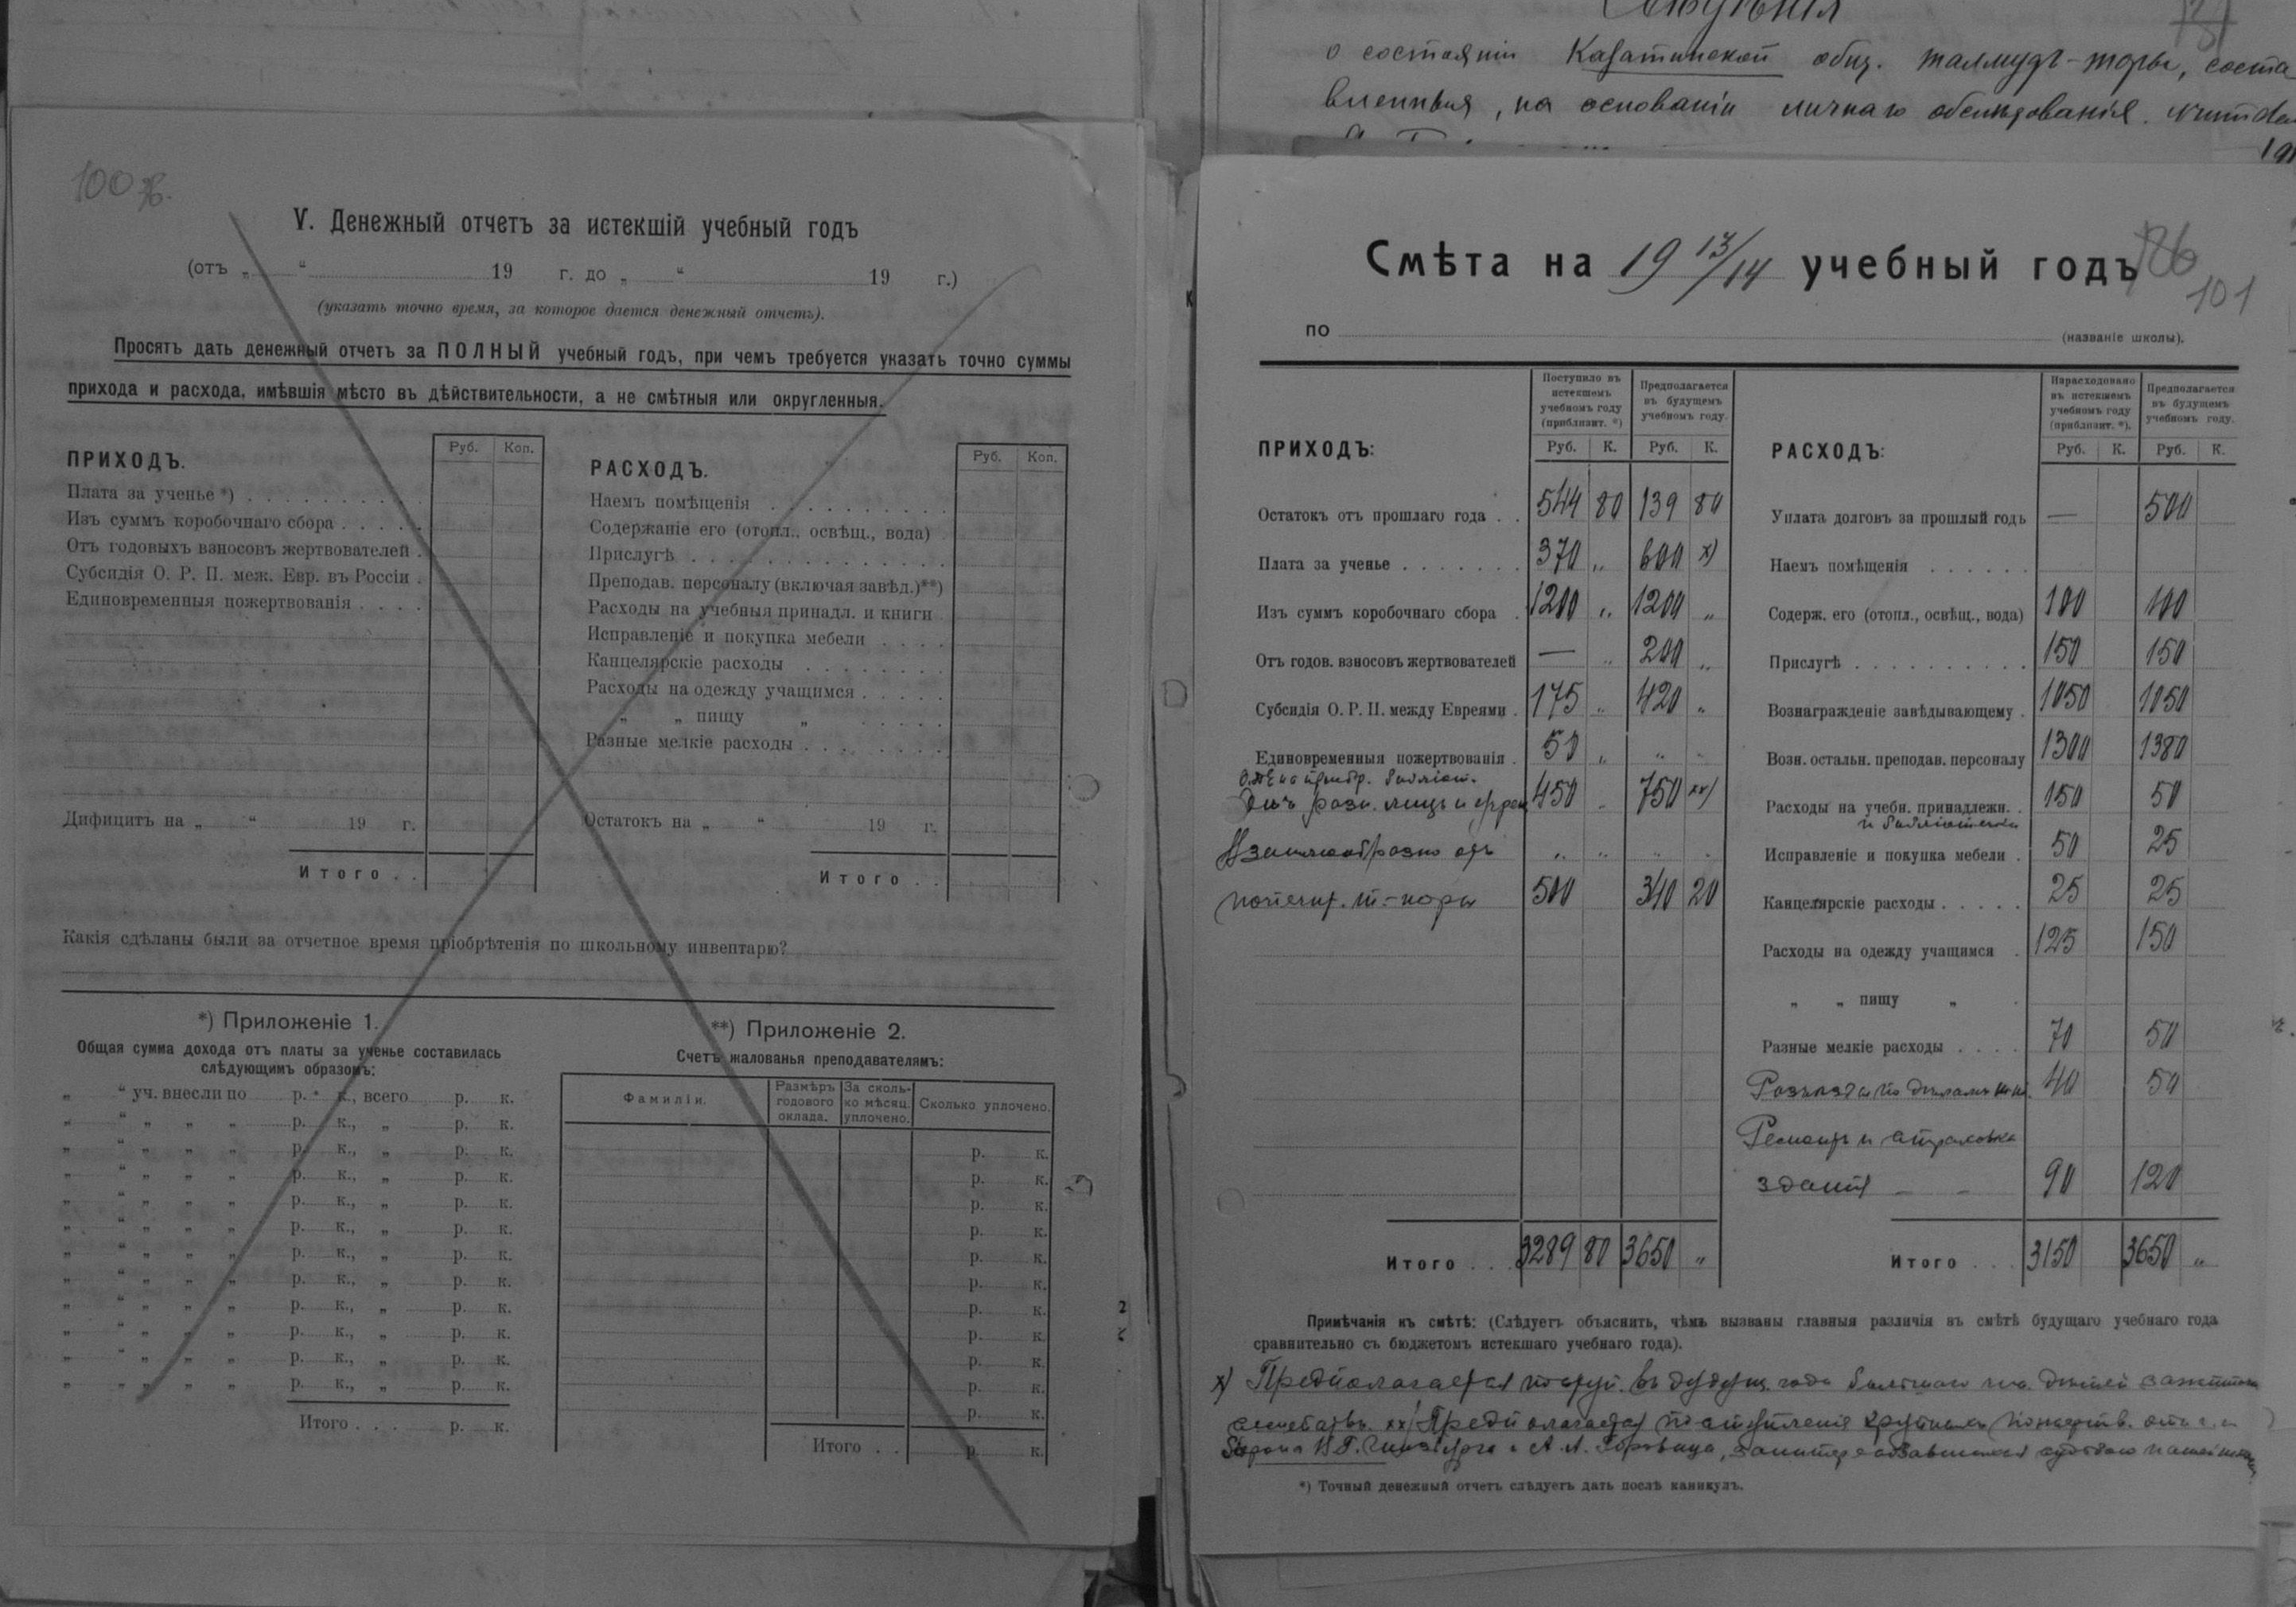 о состоянiи Казатинской общ. талмудъ-торы, соста-
вленныя, на основанiи личнаго обслѣдованiя.
100 об.
V. Денежный отчетъ за истекшiй учебный годъ
(отъ „ “ 19 г. до „ “ 19 г.)
(указать точно время, за которое дается денежный отчетъ).
Просятъ дать денежный отчетъ за ПОЛНЫЙ учебный годъ, при чемъ требуется указать точно суммы
прихода и расхода, имѣвшiя мѣсто въ дѣйствительности, а не смѣтныя или округленныя.
ПРИХОДЪ. Руб. Коп.
Плата за ученье *)
Изъ суммъ коробочнаго сбора
Отъ годовыхъ взносовъ жертвователей
Субсидiя О. Р. П. меж. Евр. въ Россiи
Единовременныя пожертвованiя
Дифицитъ на „ “ 19 г.
Итого
РАСХОДЪ. Руб. Коп.
Наемъ помѣщенiя
Содержанiе его (отопл., освѣщ., вода)
Прислугѣ
Преподав. персоналу (включая завѣд.)**)
Расходы на учебныя принадл. и книги
Исправленiе и покупка мебели
Канцелярскiе расходы
Расходы на одежду учащимся
„ „ пищу „
Разные мелкiе расходы
Остатокъ на „ “ 19 г.
Итого
Какiя сдѣланы были за отчетное время прiобрѣтенiя по школьному инвентарю?
*) Приложенiе 1.
Общая сумма дохода отъ платы за ученье составилась
слѣдующимъ образомъ:
„ “ уч. внесли по р. к., всего р. к.
„ “ „ „ „ р. к., „ р. к.
„ “ „ „ „ р. к., „ р. к.
„ “ „ „ „ р. к., „ р. к.
„ “ „ „ „ р. к., „ р. к.
„ “ „ „ „ р. к., „ р. к.
„ “ „ „ „ р. к., „ р. к.
„ “ „ „ „ р. к., „ р. к.
„ “ „ „ „ р. к., „ р. к.
„ “ „ „ „ р. к., „ р. к.
„ “ „ „ „ р. к., „ р. к.
„ “ „ „ „ р. к., „ р. к.
Итого . . . р. к.
**) Приложенiе 2.
Счетъ жалованья преподавателямъ:
Фамилiи. Размѣръ годового оклада. За сколь-ко мѣсяц. уплочено. Сколько уплочено.
р. к.
р. к.
р. к.
р. к.
р. к.
р. к.
р. к.
р. к.
р. к.
р. к.
р. к.
Итого . . р. к.
Смѣта на 1913/14 учебный годъ
186
101
по (названiе школы).
ПРИХОДЪ: Поступило въ истекшемъ учебномъ году (приблизит. *) Руб. К. Предполагается въ будущемъ учебномъ году. Руб. К.
Остатокъ отъ прошлаго года . . 544 80 139 80
Плата за ученье 370 „ 600 х)
Изъ суммъ коробочнаго сбора . 1200 „ 1200 „
Отъ годов. взносовъ жертвователей — „ 200 „
Субсидiя О. Р. П. между Евреями . 175 „ 420 „
Единовременныя пожертвованiя . 50 „ „ „
450 „ 750 хх)
Взаимообразно отъ „ „ „ „
попечит. т.-торы 500 340 20
Итого . . . 3289 80 3650 „
РАСХОДЪ: Израсходовано въ истекшемъ учебномъ году (приблизит. *). Руб. К. Предполагается въ будущемъ учебномъ году. Руб. К.
Уплата долговъ за прошлый годъ — 500
Наемъ помѣщенiя
Содерж. его (отопл., освѣщ., вода) 100 100
Прислугѣ 150 150
Вознагражденiе завѣдывающему . 1050 1050
Возн. остальн. преподав. персоналу 1300 1380
Расходы на учебн. принадлежн. . 150 50
и библiотеки
Исправленiе и покупка мебели . 50 25
Канцелярскiе расходы 25 25
Расходы на одежду учащимся . 125 150
„ „ пищу „
Разные мелкiе расходы 70 50
Разъѣзды по дѣламъ 40 50
Ремонтъ и страховка
зданiя 90 120
Итого . . . 3150 3650 „
Примѣчанiя къ смѣтѣ: (Слѣдуетъ объяснить, чѣмъ вызваны главныя различiя въ смѣтѣ будущаго учебнаго года
сравнительно съ бюджетомъ истекшаго учебнаго года).
х) Предполагается поступ. въ будущ. году большаго чис. дѣтей зажиточн.
хх) Предполагается поступленiя крупныхъ пожертв. отъ г. г.
Барона В. Г. Гинзбурга и А. Л. Горовица, заинтересовавшихся судьбою нашей
*) Точный денежный отчетъ слѣдуетъ дать послѣ каникулъ.